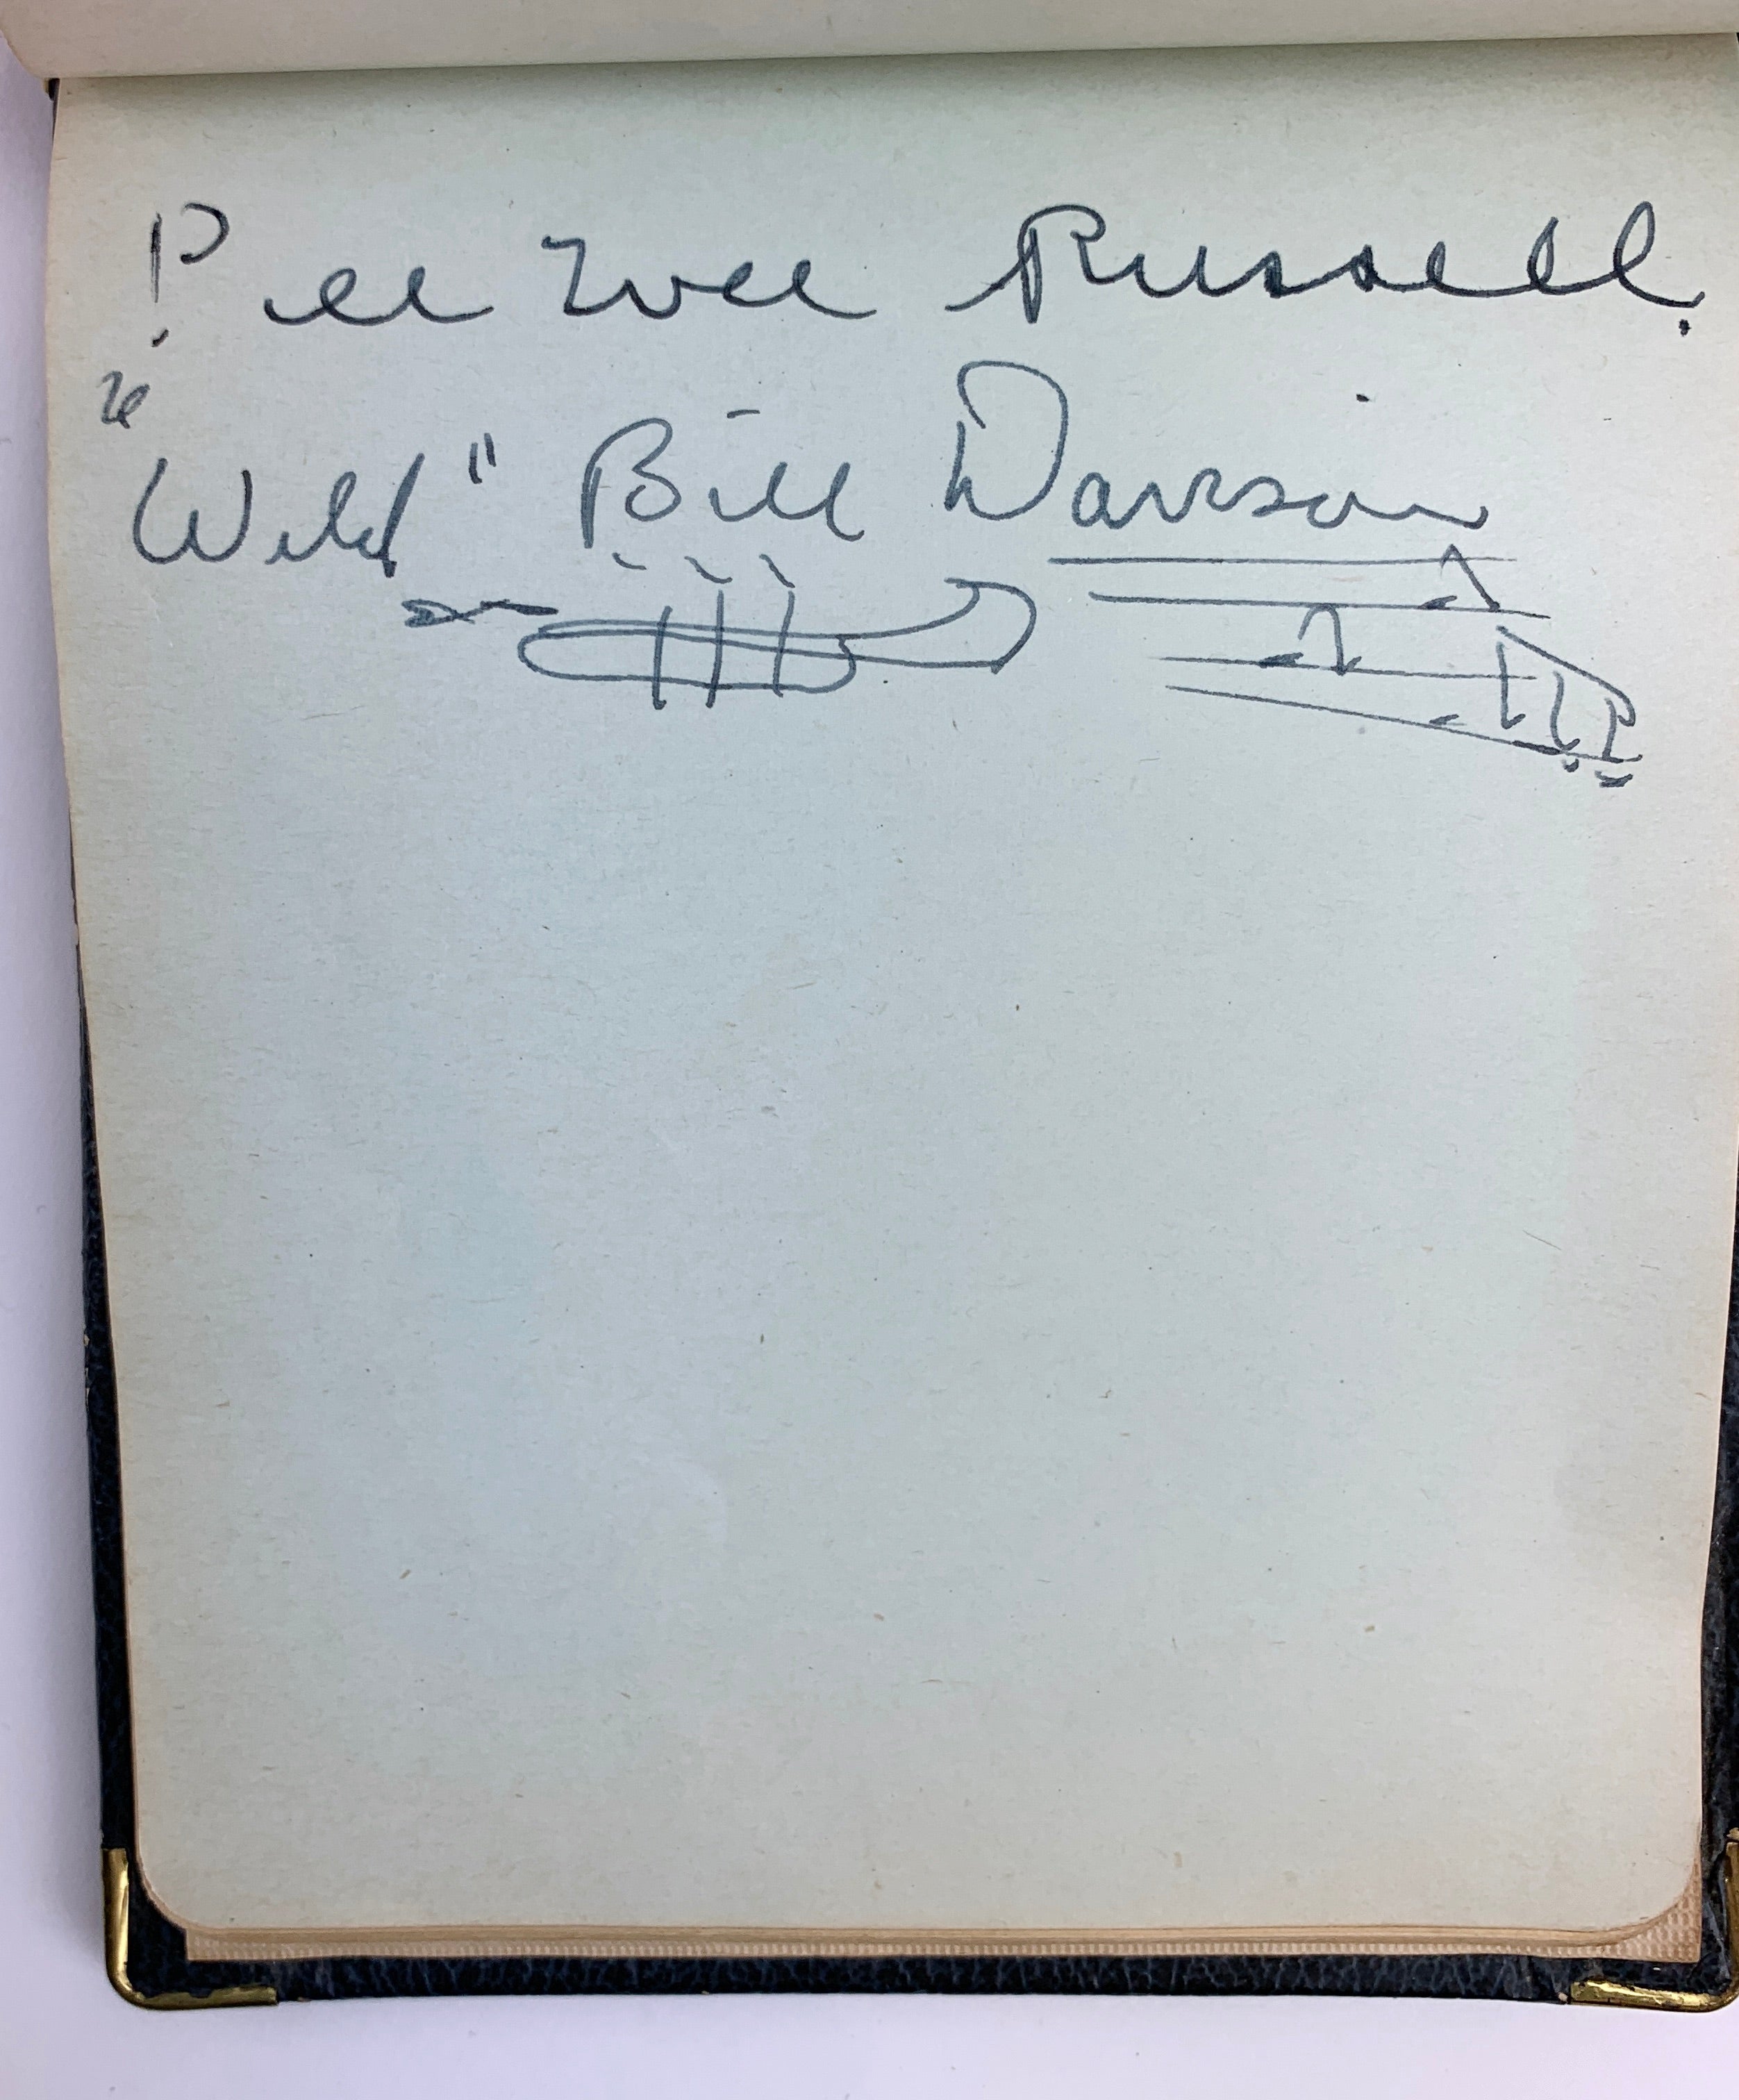 Pee Wee Russell.
"Wild" Bill Davison